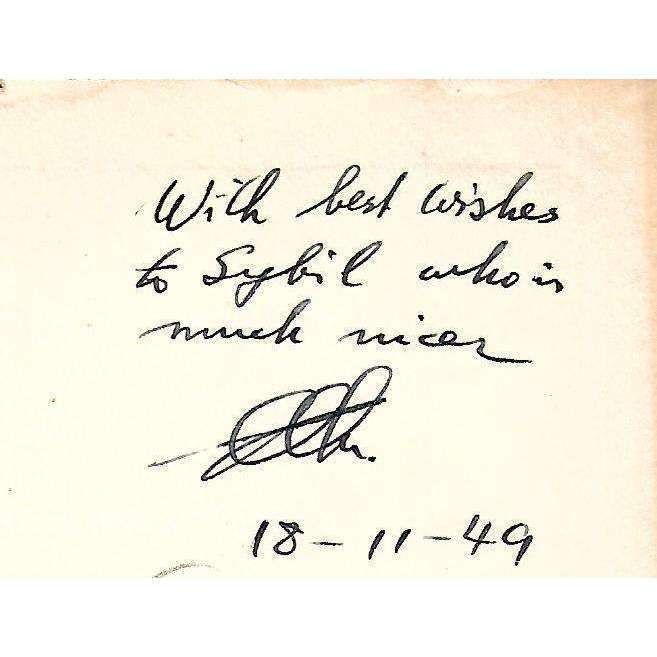 With best wishes
to Sybil who is
much nicer
18-11-49